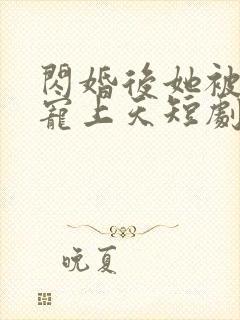 閃婚後她被
寵上天短劇
晚夏